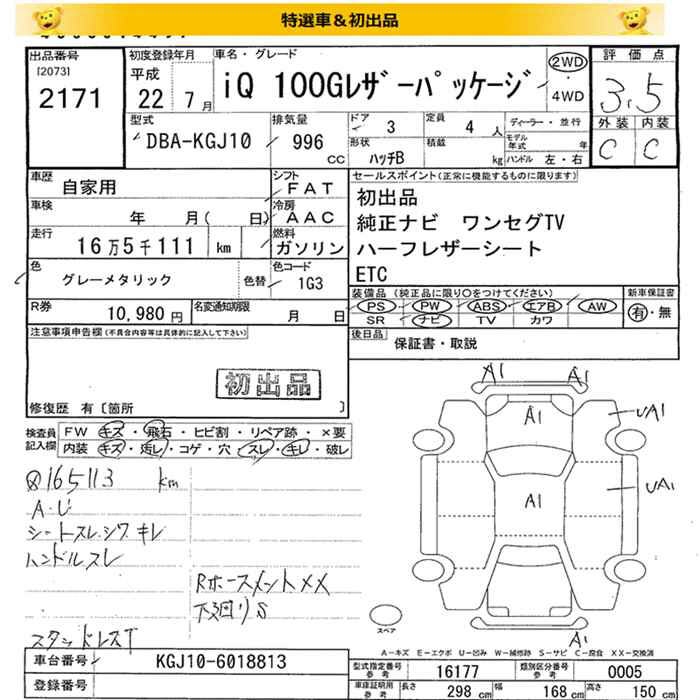 特選車＆初出品
出品番号
[2073]
2171
初度登録年月
平成
22 7月
車名・グレード
iQ 100Gレザーパッケージ
2WD
・
4WD
評価点
3.5
外装 内装
C C
型式
DBA-KGJ10
排気量
996
CC
ドア
3
定員
4 人
形状
ハッチB
積載
kg
ディーラー・並行
モデル年式 年
ハンドル 左・右
車歴
自家用
シフト
FAT
車検
年 月( 日)
冷房
AAC
走行
16万5千111 km
燃料
ガソリン
色
グレーメタリック
色替
色コード
1G3
R券
10,980 円
名変通知期限
月 日
セールスポイント(正常に機能するものに限ります)
初出品
純正ナビ ワンセグTV
ハーフレザーシート
ETC
装備品 (純正品に限り○をつけてください)
PS PW ABS エアB AW
SR ナビ TV カワ
新車保証書
有・無
後日品
保証書・取説
注意事項申告欄(不具合内容等は具体的に記入して下さい)
初出品
修復歴 有〔箇所 〕
検査員
記入欄
FW キズ・飛石・ヒビ割・リペア跡・×要
内装 キズ・汚レ・コゲ・穴・スレ・キレ・破レ
165113 km
A.U
シートスレ.シワ キレ
ハンドルスレ
Rホースメント××
下廻りS
スタットレスT
A1 A1
A1
UA1
A1
UA1
A1
スペア
A－キズ E－エクボ U－凹み W－補修跡 S－サビ C－腐食 XX－交換済
車台番号
KGJ10-6018813
登録番号
型式指定番号
参考
16177
類別区分番号
参考
0005
車庫証明用
参考
長さ
298 cm
幅
168 cm
高さ
150 cm